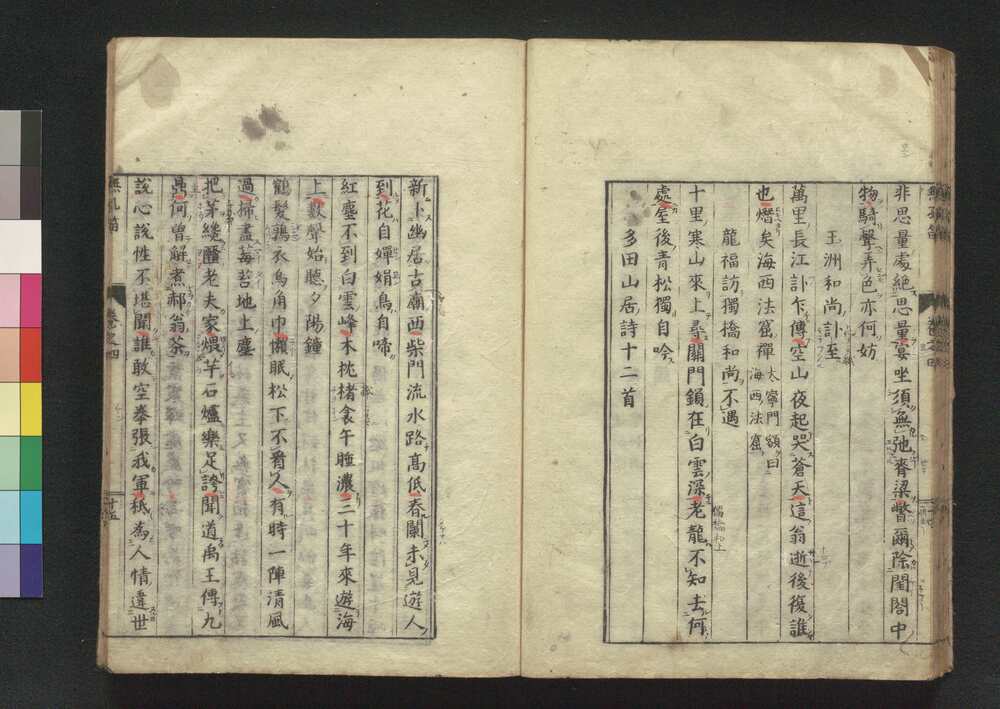 非思量處絕思量宴坐須無弛脊梁瞥爾除閨閤中
物騎聲弄色亦何妨
玉洲和尚訃至
萬里長江訃乍傳空山夜起哭蒼天這翁逝後復誰
也熸矣海西法窟禪太寧門額曰海西法窟
龍福訪獨橋和尚不遇
十里寒山來上尋關門鎖在白雲深老龍不知去何
處屋後青松獨自吟
多田山居詩十二首
新卜幽居古廟西柴門流水路高低春闌未見遊人
到花自嬋娟鳥自啼
紅塵不到白雲峰木枕楮衾午睡濃三十年來遊海
上數聲始聽夕陽鐘
鶴髮鶉衣烏角巾懶眠松下不看人有時一陣清風
過掃盡莓苔地上塵
把茅纔匾老夫家煨芋石爐樂足誇聞道禹王傳九
鼎何曾解煮郝翁茶
說心說性不堪聞誰敢空拳張我軍秖為人情違世
無孔笛
卷之四
十五